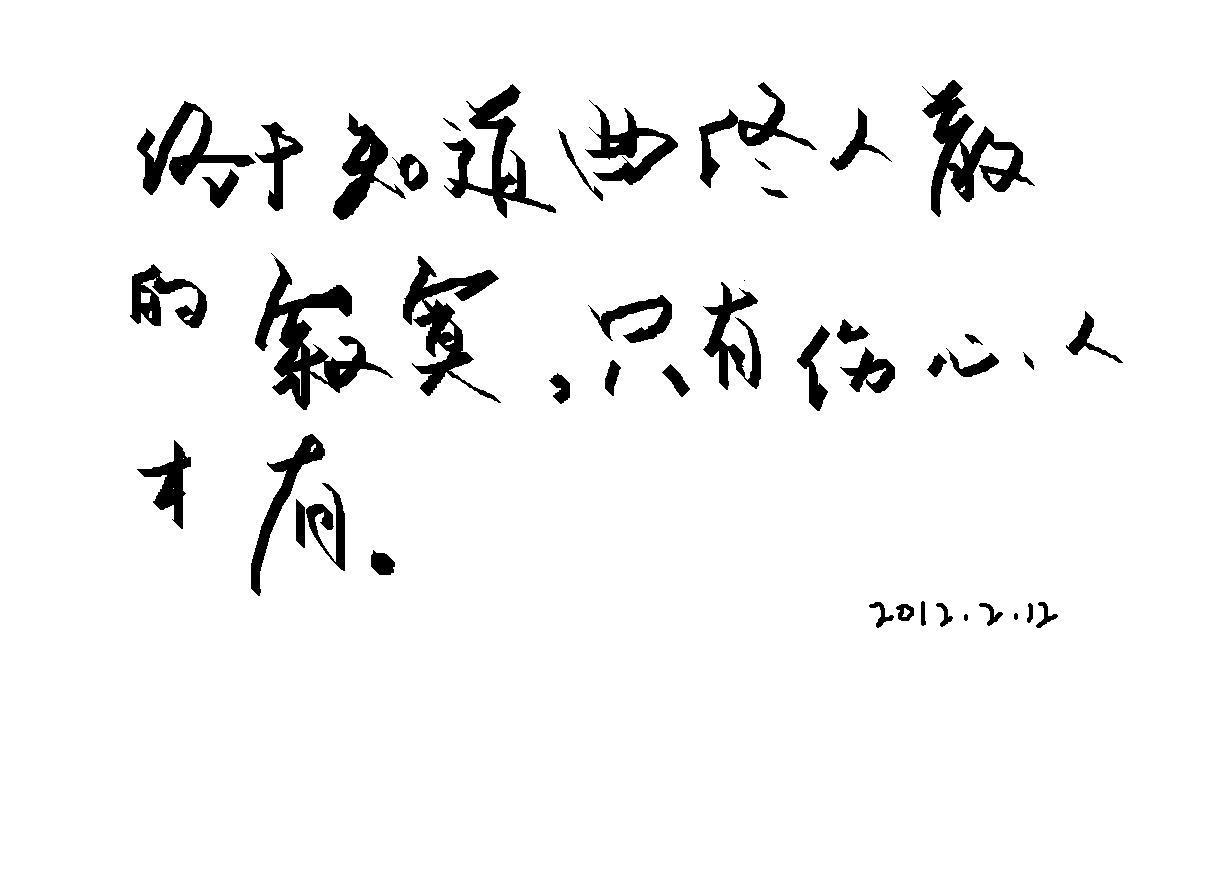 终于知道曲终人散
的寂寞,只有伤心人
才有。
2012.2.12